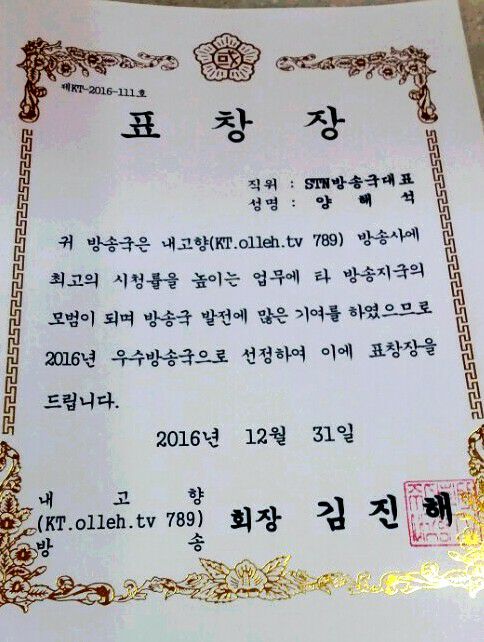 제KT-2016-111호
표 창 장
직위 : STN방송국대표
성명 : 양 해 석
귀 방송국은 내고향(KT.olleh.tv 789) 방송사에
최고의 시청률을 높이는 업무에 타 방송지국의
모범이 되며 방송국 발전에 많은 기여를 하였으므로
2016년 우수방송국으로 선정하여 이에 표창장을
드립니다.
2016년 12월 31일
내 고 향
(KT.olleh.tv 789) 회장 김 진 해
방 송